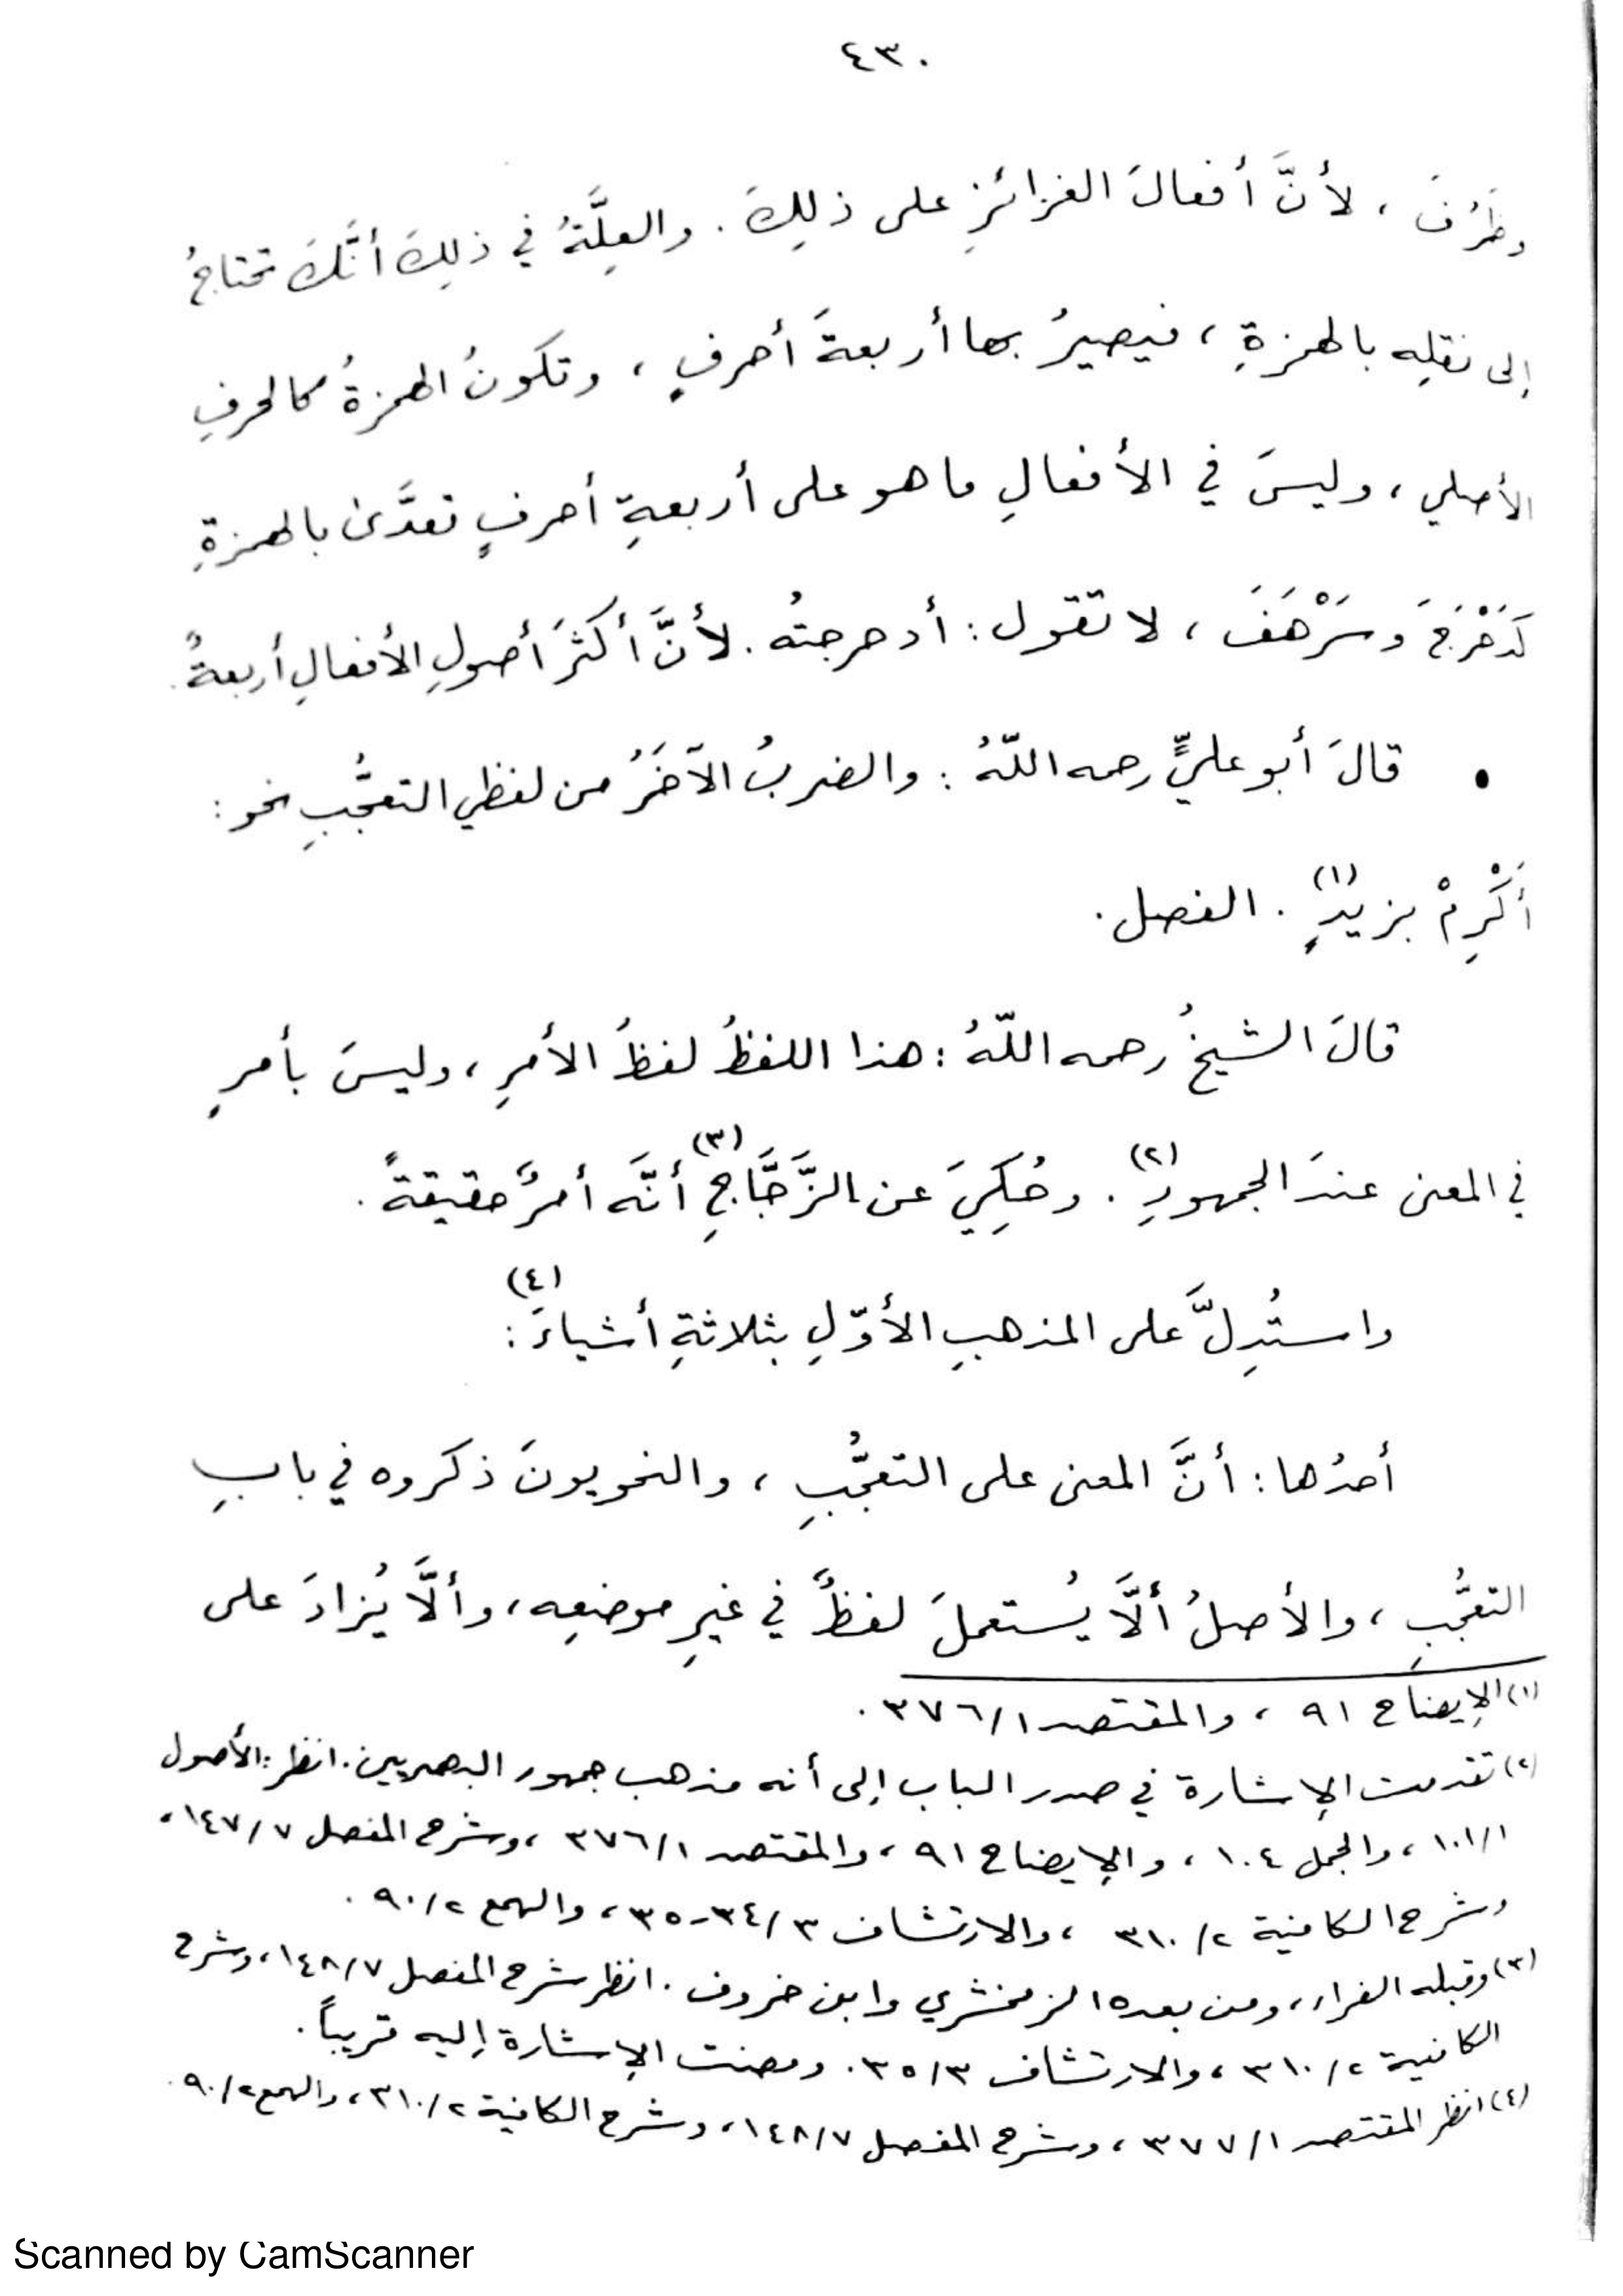 ٤٣٠
وظَرُفَ ، لأنَّ أفعالَ الغرائزِ على ذلِكَ . والعِلَّةُ في ذلِكَ أنَّكَ تحتاجُ
إلى نقلِه بالهمزةِ ، فيصيرُ بها أربعةَ أحرفٍ ، وتكونُ الهمزةُ كالحرفِ
الأصلي ، وليسَ في الأفعالِ ما هو على أربعةِ أحرفٍ تعدَّى بالهمزةِ
كَدَحْرَجَ وسَرْهَفَ ، لا تقول : أدحرجتُه . لأنَّ أكثرَ أصولِ الأفعالِ أربعةٌ .
• قالَ أبو عليٍّ رحمه اللّهُ : والضربُ الآخَرُ من لفظي التعجُّبِ نحو :
أَكْرِمْ بزيدٍ (١) . الفصل .
قالَ الشيخُ رحمه اللّهُ : هذا اللفظُ لفظُ الأمرِ ، وليسَ بأمرٍ
في المعنى عندَ الجمهورِ (٢) . وحُكِيَ عن الزَّجَّاجِ (٣) أنَّه أمرٌ حقيقةً .
واستُدِلَّ على المذهبِ الأوّلِ بثلاثةِ أشياءَ (٤) :
أحدُها : أنَّ المعنى على التعجُّبِ ، والنحويونَ ذكروه في بابِ
التعجُّبِ ، والأصلُ ألَّا يُستعملَ لفظٌ في غيرِ موضعِه ، وألَّا يُزادَ على
(١) الإيضاح ٩١ ، والمقتصد ٣٧٦/١ .
(٢) تقدمت الإشارة في صدر الباب إلى أنه مذهب جمهور البصريين . انظر : الأصول
١٠١/١ ، والجمل ١٠٤ ، والإيضاح ٩١ ، والمقتصد ٣٧٦/١ ، وشرح المفصل ١٤٧/٧ ،
وشرح الكافية ٣١٠/٢ ، والارتشاف ٣٤/٣-٣٥ ، والهمع ٩٠/٢ .
(٣) وقبله الفراء ، ومن بعده الزمخشري وابن خروف . انظر شرح المفصل ١٤٨/٧ ، وشرح
الكافية ٣١٠/٢ ، والارتشاف ٣٥/٣ . ومضت الإشارة إليه قريباً .
(٤) انظر المقتصد ٣٧٧/١ ، وشرح المفصل ١٤٨/٧ ، وشرح الكافية ٣١٠/٢ ، والهمع ٩٠/٢ .
Scanned by CamScanner